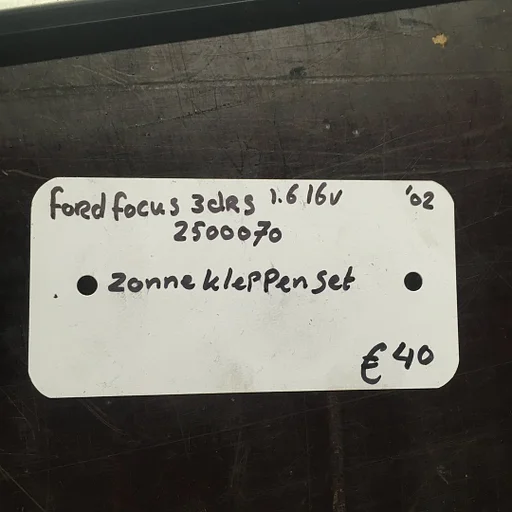 Ford focus 3dRs 1.6 16v '02
2500070
zonnekleppenset
€ 40